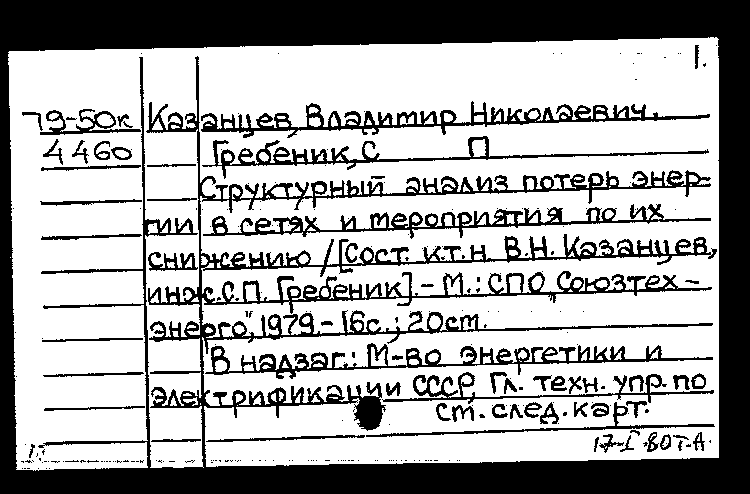 1.
79-50к Казанцев, Владимир Николаевич.
4460 Гребеник, С П
Структурный анализ потерь энер-
гии в сетях и мероприятия по их
снижению /[Сост. к.т.н. В.Н. Казанцев,
инж. С.П. Гребеник]. - М.: СПО „Союзтех-
энерго", 1979. - 16с.; 20см.
В надзаг.: М-во энергетики и
электрификации СССР, Гл. техн. упр. по
см. след. карт.